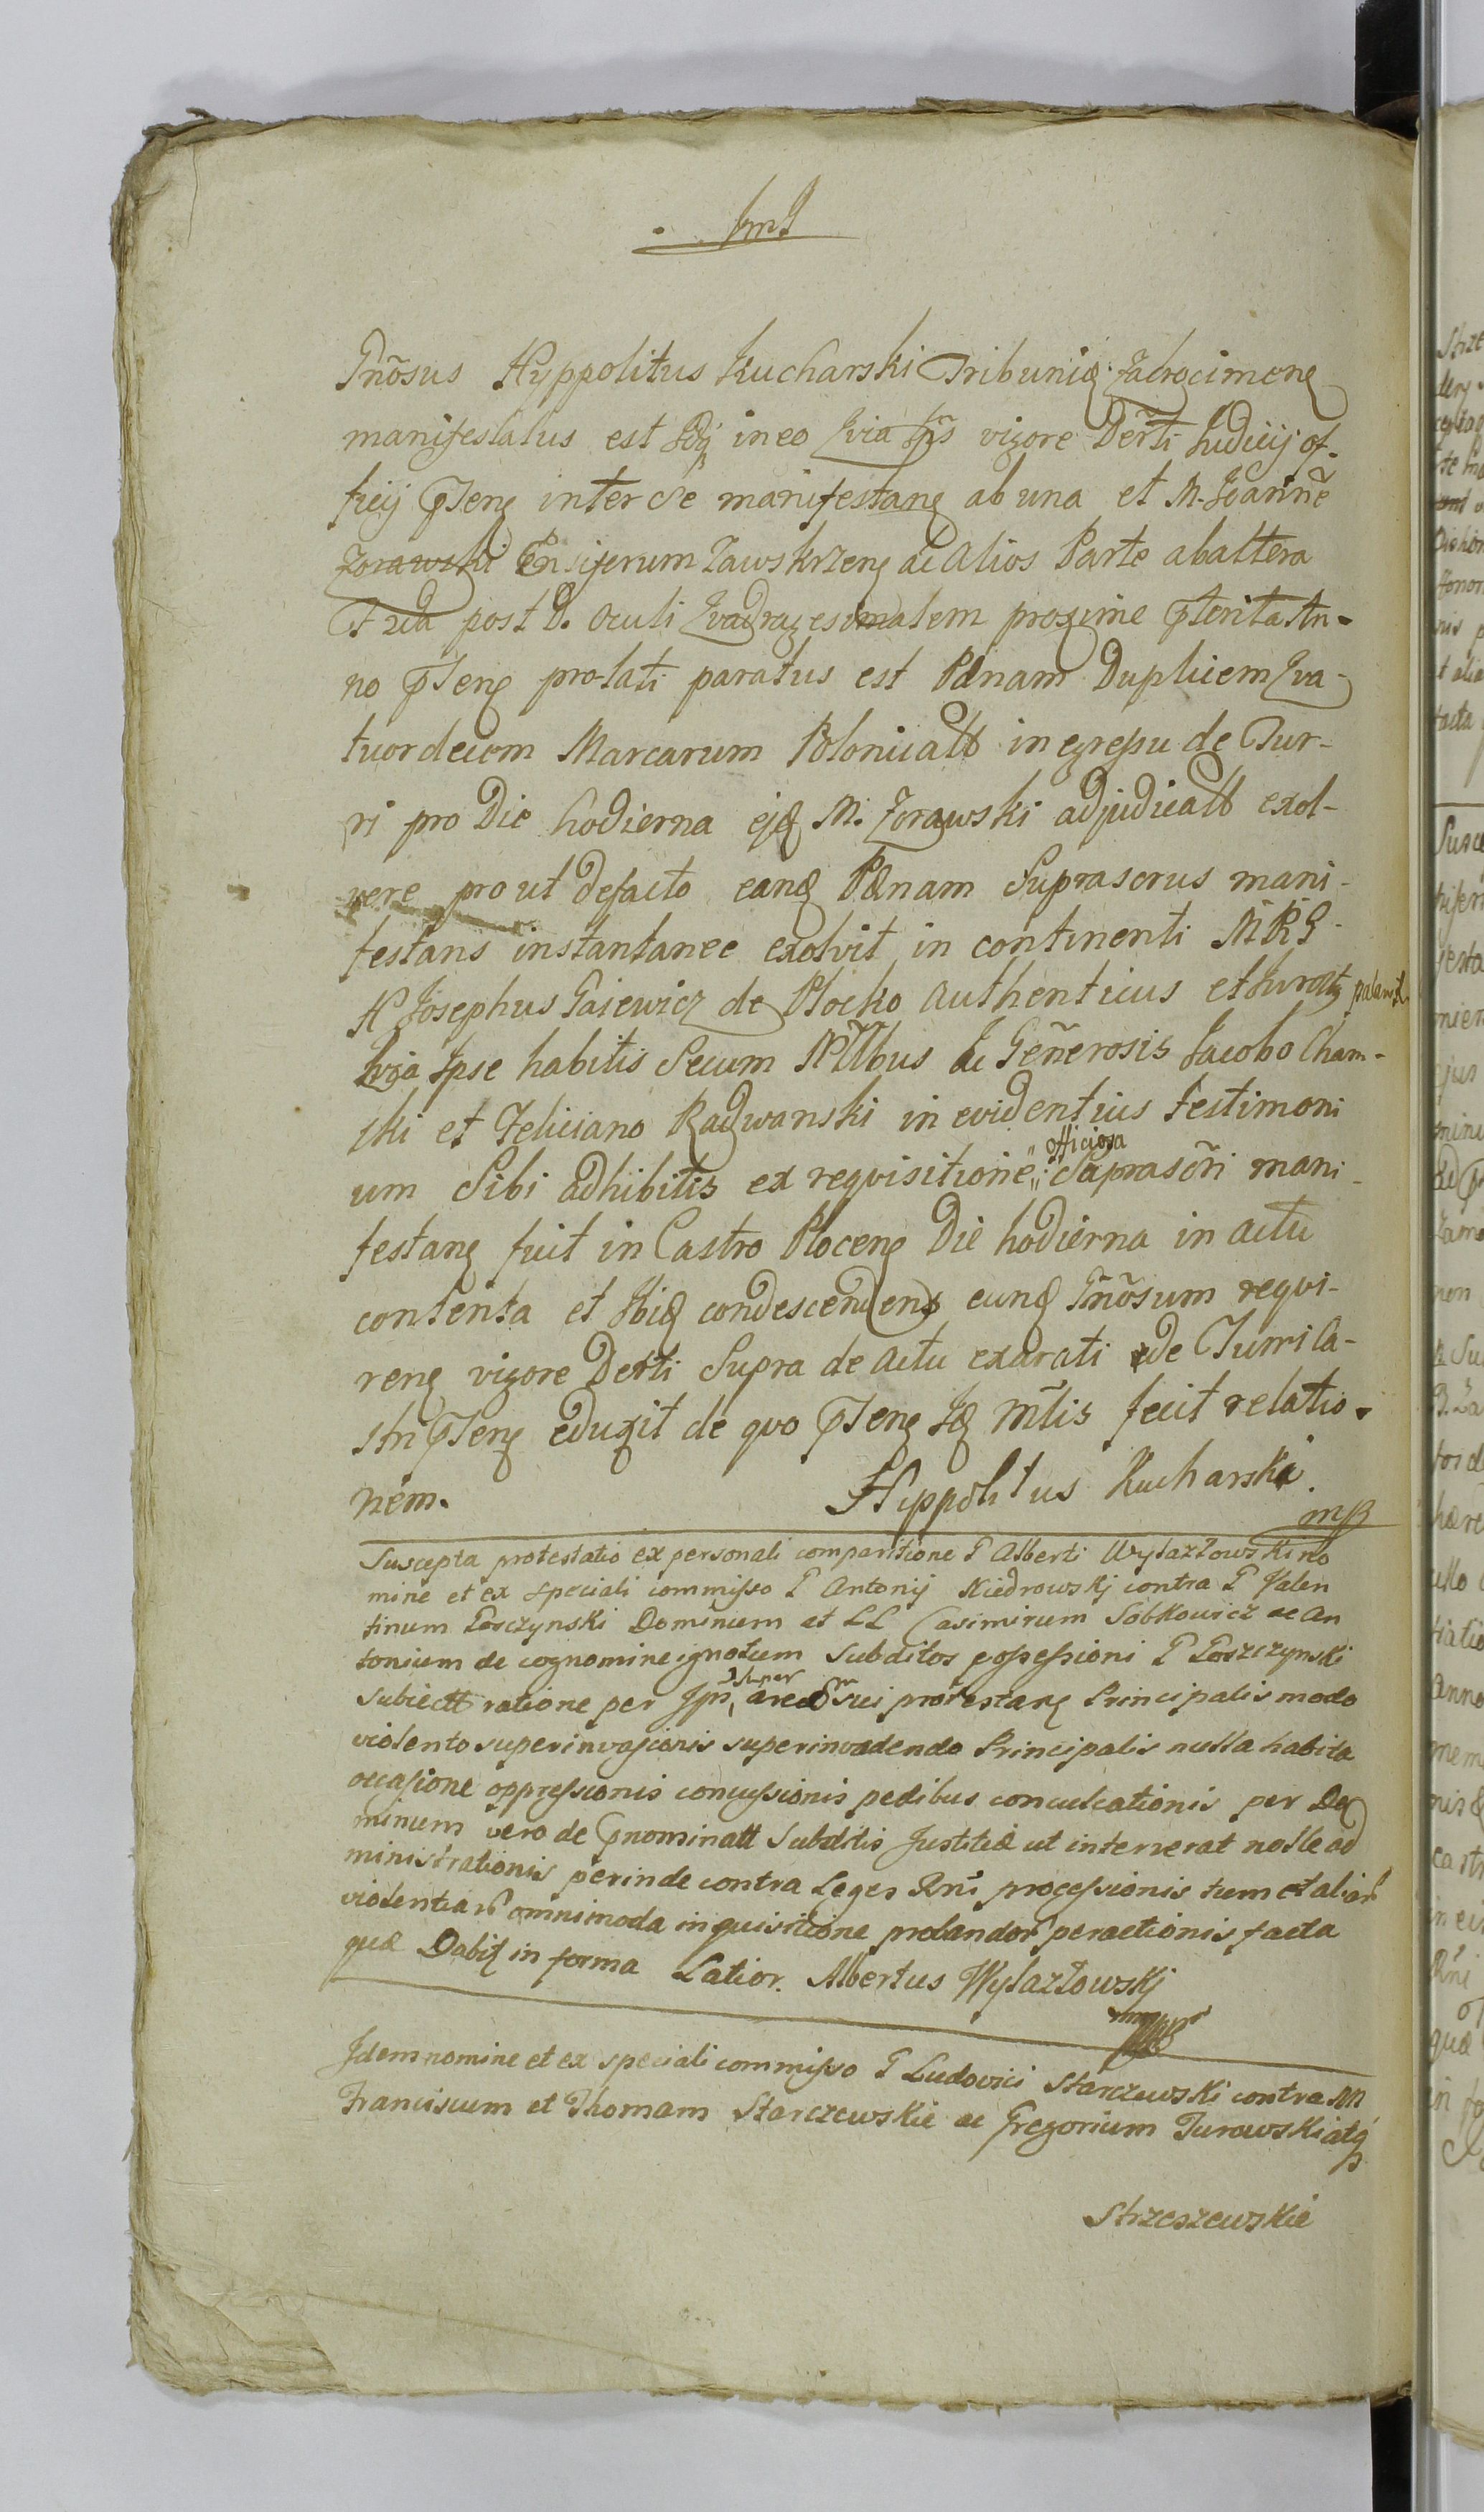 Gnõsus Hyppolitus Kucharski Tribunię Zakrocimenę
manifestatus est Idq in eo Qvia Ips vigore Derti Judicij of-
ficij pntenę inter Se manifestanę ab una et M. Joannē
Zorawski Ensiferum Zawskrzenę ac Alios Parte ab altera
F 2da post D. Oculi Qvadragesimalem proxime pterita An-
no pntenę prolati paratus est Pænam Duplicem Qva-
tuordecem Marcarum Polonicall in egressu de Tur-
ri pro Die hodierna eję M. Zorawski adjudicall exol-
vere prout defacto eanę Pænam Suprascrus mani-
festans instantanee exolvit in continenti MRG
N Josephus Gaiewicz de Plocko Authenticus et Juratę palam
Qvia Ipse habitis Secum Nllbus Ac Geñerosis Jacobo Cham-
ski et Feliciano Radwanski in evidentius testimoni
um Sibi adhibitis ex reqvisitione officiosa Suprascri mani-
festanę fuit in Castro Plocenę Die hodierna in actu
contenta et Ibię condescendens eunę Gnõsum reqvi-
renę vigore Derti Supra de Actu exarati de Turri Ca-
stri pntenę eduxit de qvo pntenę Ię Mtis fecit relatio-
nem. Hippolitus Kucharski.
mp
Suscepta protestatio ex personali comparitione G Alberti Wylazłowski no
mine et ex speciali commisso G Antonij Kiedrowskj contra G Valen
tinum Goszczynski Dominum et LL Casimirum Sobkowicz ac An
tonium de cognomine ignotum Subditos possessioni G Goszczynski
Subiectt ratione per Ips super area Sui protestanę Principalis modo
violento superinvasionis superinvadendo Principalis nulla habita
occasione oppressionis concussionis pedibus conculcationis per Do
minum vero de pnominatt Subditis Justitiæ ut intererat nolle ad
ministrationis perinde contra Leges Rni processionis tum et aliar
violentiar omnimoda inquisitione probandor peractionis facta
quæ Dabit in forma Latior. Albertus Wylazłowskj
mp
Idem nomine et ex speciali commisso G Ludovici Starczewski contra M
Franciscum et Thomam Starczewskie ac Gregorium Turowski atq
Strzeszewskie